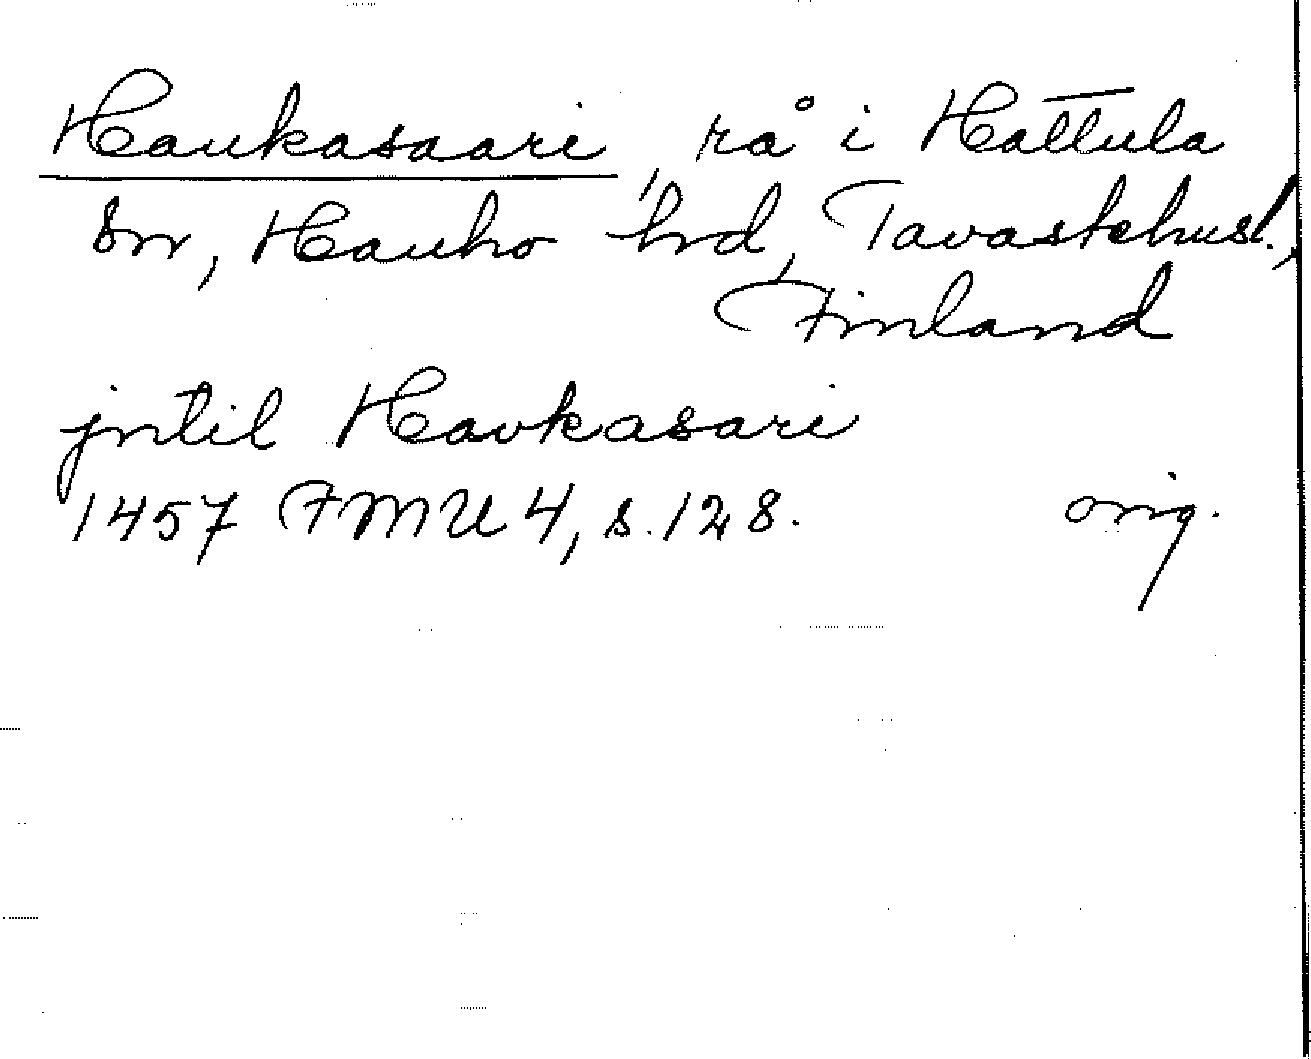 Haukasaari, rå i Hattula
sn, Hauho hrd, Tavastehusl.,
Finland
jntil Havkasari
1457 FMU 4, s. 128. orig.